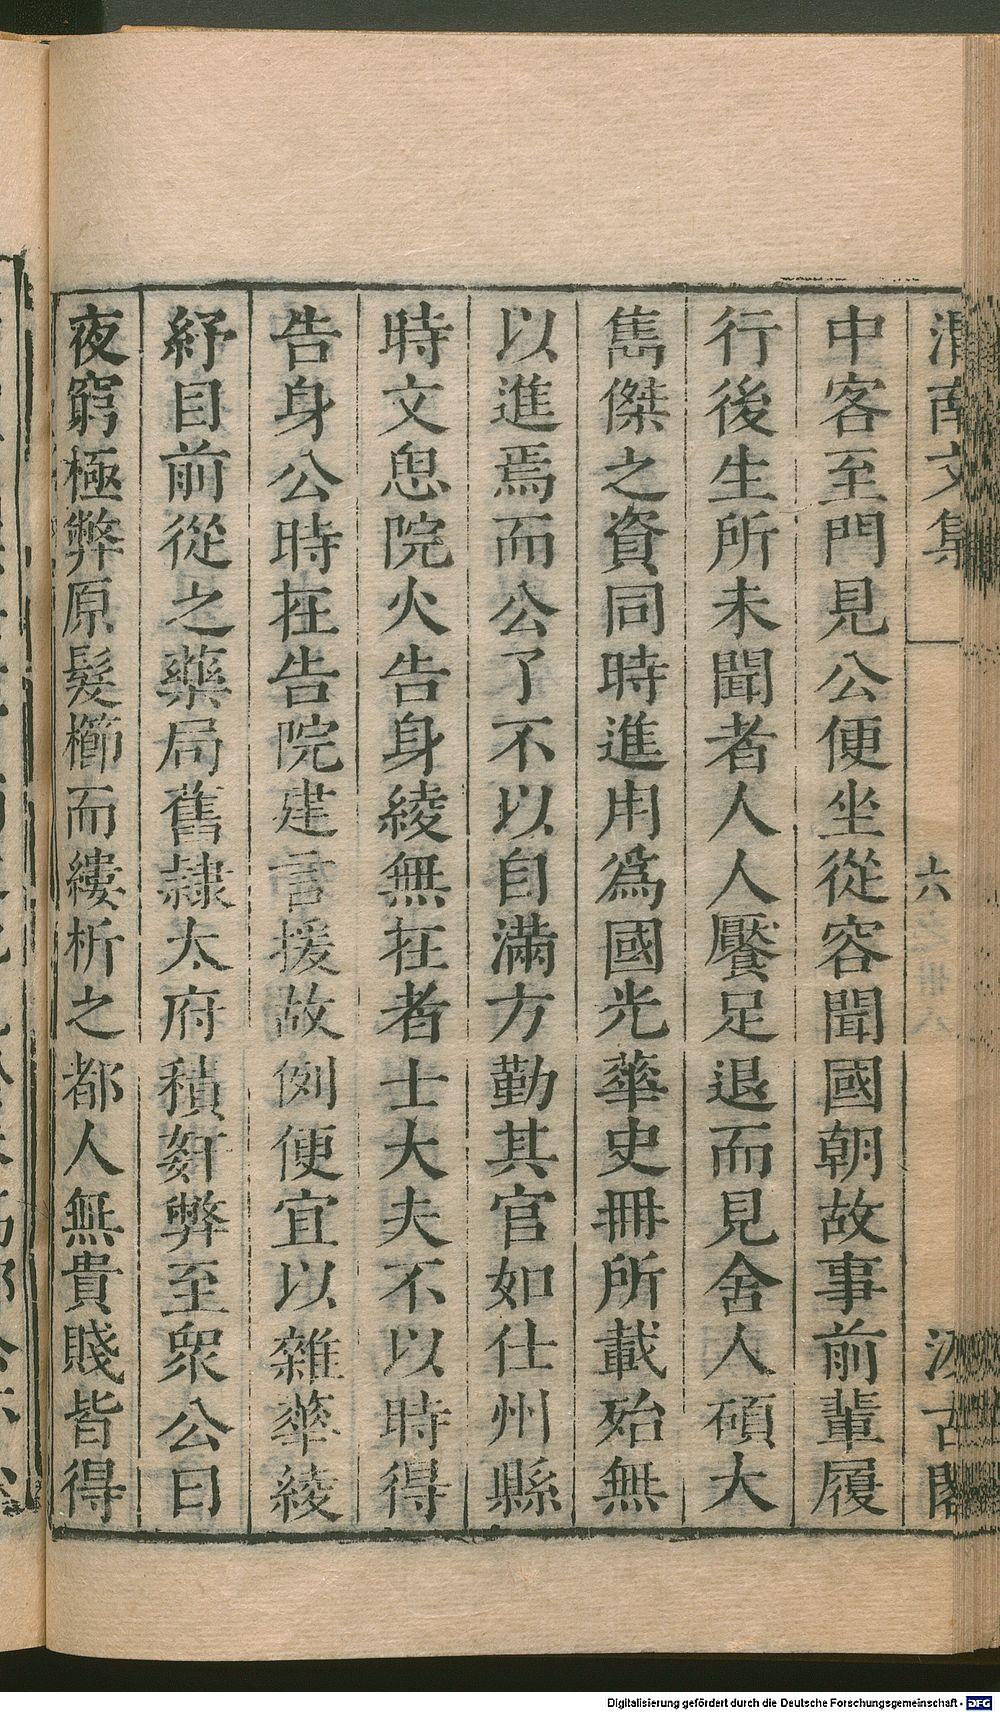 渭南文集 六 汲古閣
中客至門見公便坐從容聞國朝故事前輩履
行後生所未聞者人人饜足退而見舍人碩大
雋傑之資同時進用爲國光華史冊所載殆無
以進焉而公了不以自滿方勤其官如仕州縣
時文思院火告身綾無在者士大夫不以時得
告身公時在告院建言援故例便宜以雜華綾
紓目前從之藥局舊隷太府積姧弊至衆公日
夜窮極弊原髮櫛而縷析之都人無貴賤皆得
Digitalisierung gefördert durch die Deutsche Forschungsgemeinschaft - DFG